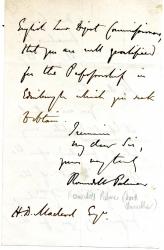 English Law Digest Commissioners,
that you are well qualified
for the Professorship in
Edinburgh which you seek
to obtain.
I remain
my dear Sir,
yours very truly
Roundell Palmer
(Roundell Palmer (Lord
H. D. Macleod Esqr.